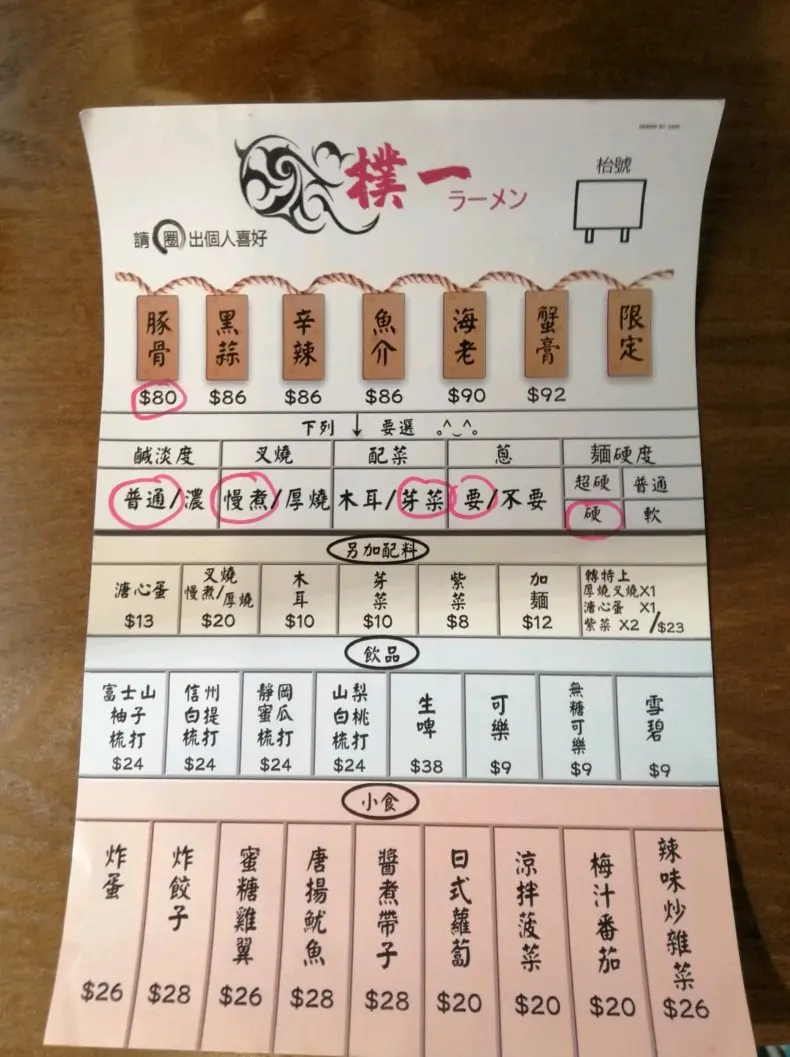 樸一
ラーメン
枱號
請圈出個人喜好
豚骨 黑蒜 辛辣 魚介 海老 蟹膏 限定
$80 $86 $86 $86 $90 $92
下列↓要選 。^‿^。
鹹淡度 叉燒 配菜 蔥 麵硬度
普通/濃 慢煮/厚燒 木耳/芽菜 要/不要
超硬 普通
硬 軟
另加配料
溏心蛋 $13
叉燒 慢煮/厚燒 $20
木耳 $10
芽菜 $10
紫菜 $8
加麵 $12
轉特上
厚燒叉燒X1
溏心蛋 X1
紫菜 X2 /$23
飲品
富士山柚子梳打 $24
信州白提梳打 $24
靜岡蜜瓜梳打 $24
山梨白桃梳打 $24
生啤 $38
可樂 $9
無糖可樂 $9
雪碧 $9
小食
炸蛋 $26
炸餃子 $28
蜜糖雞翼 $26
唐揚魷魚 $28
醬煮帶子 $28
日式蘿蔔 $20
涼拌菠菜 $20
梅汁番茄 $20
辣味炒雜菜 $26